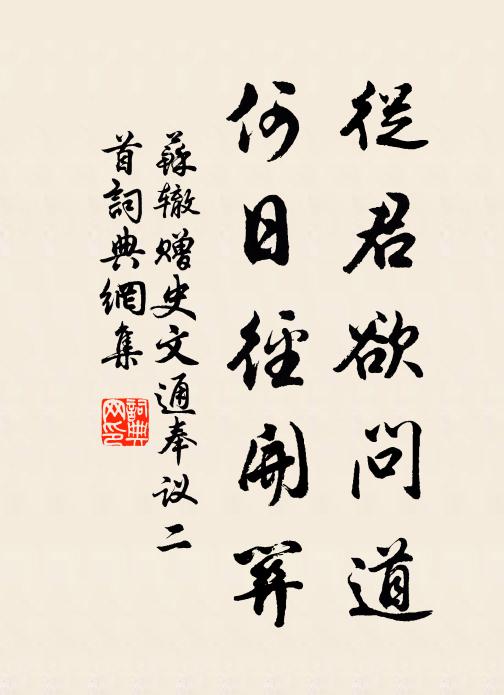 從君欲問道
何日徑開笄
蘇辙赠史文通奉议二
首詞典網集
詞典网印